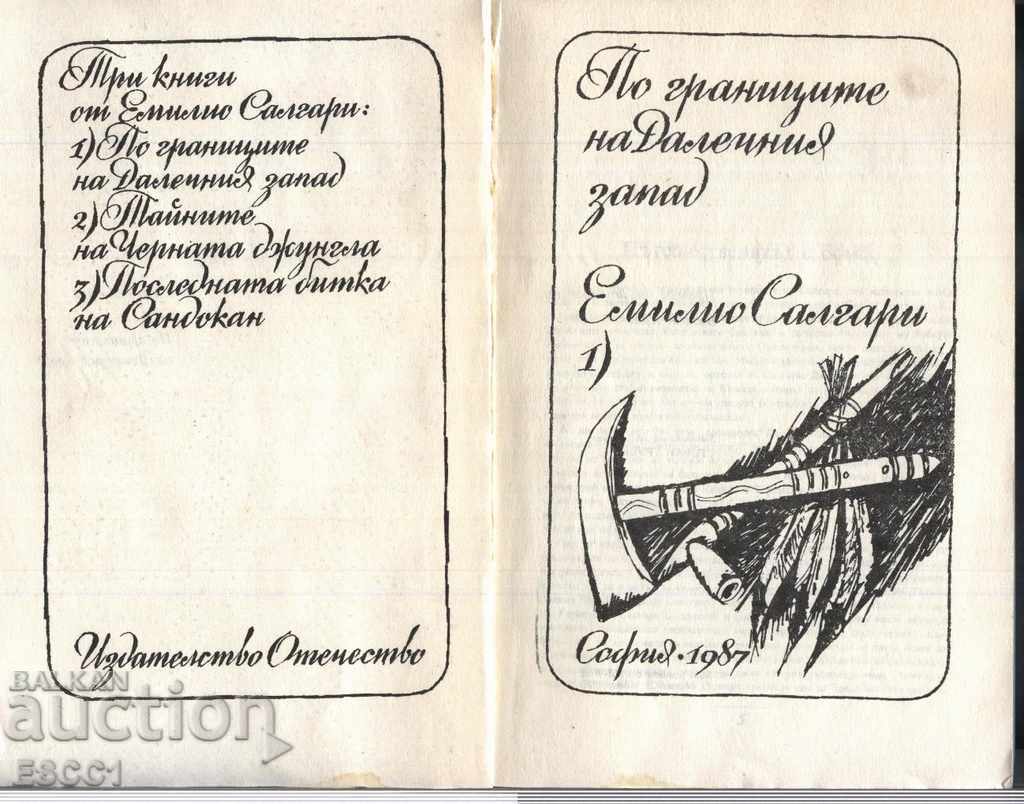 Три книги
от Емилио Салгари:
1) По границите
на Далечния запад
2) Тайните
на Черната джунгла
3) Последната битка
на Сандокан
Издателство Отечество
По границите
на Далечния
запад
Емилио Салгари
1)
София · 1987
5
BALKAN
auction
E3CC1